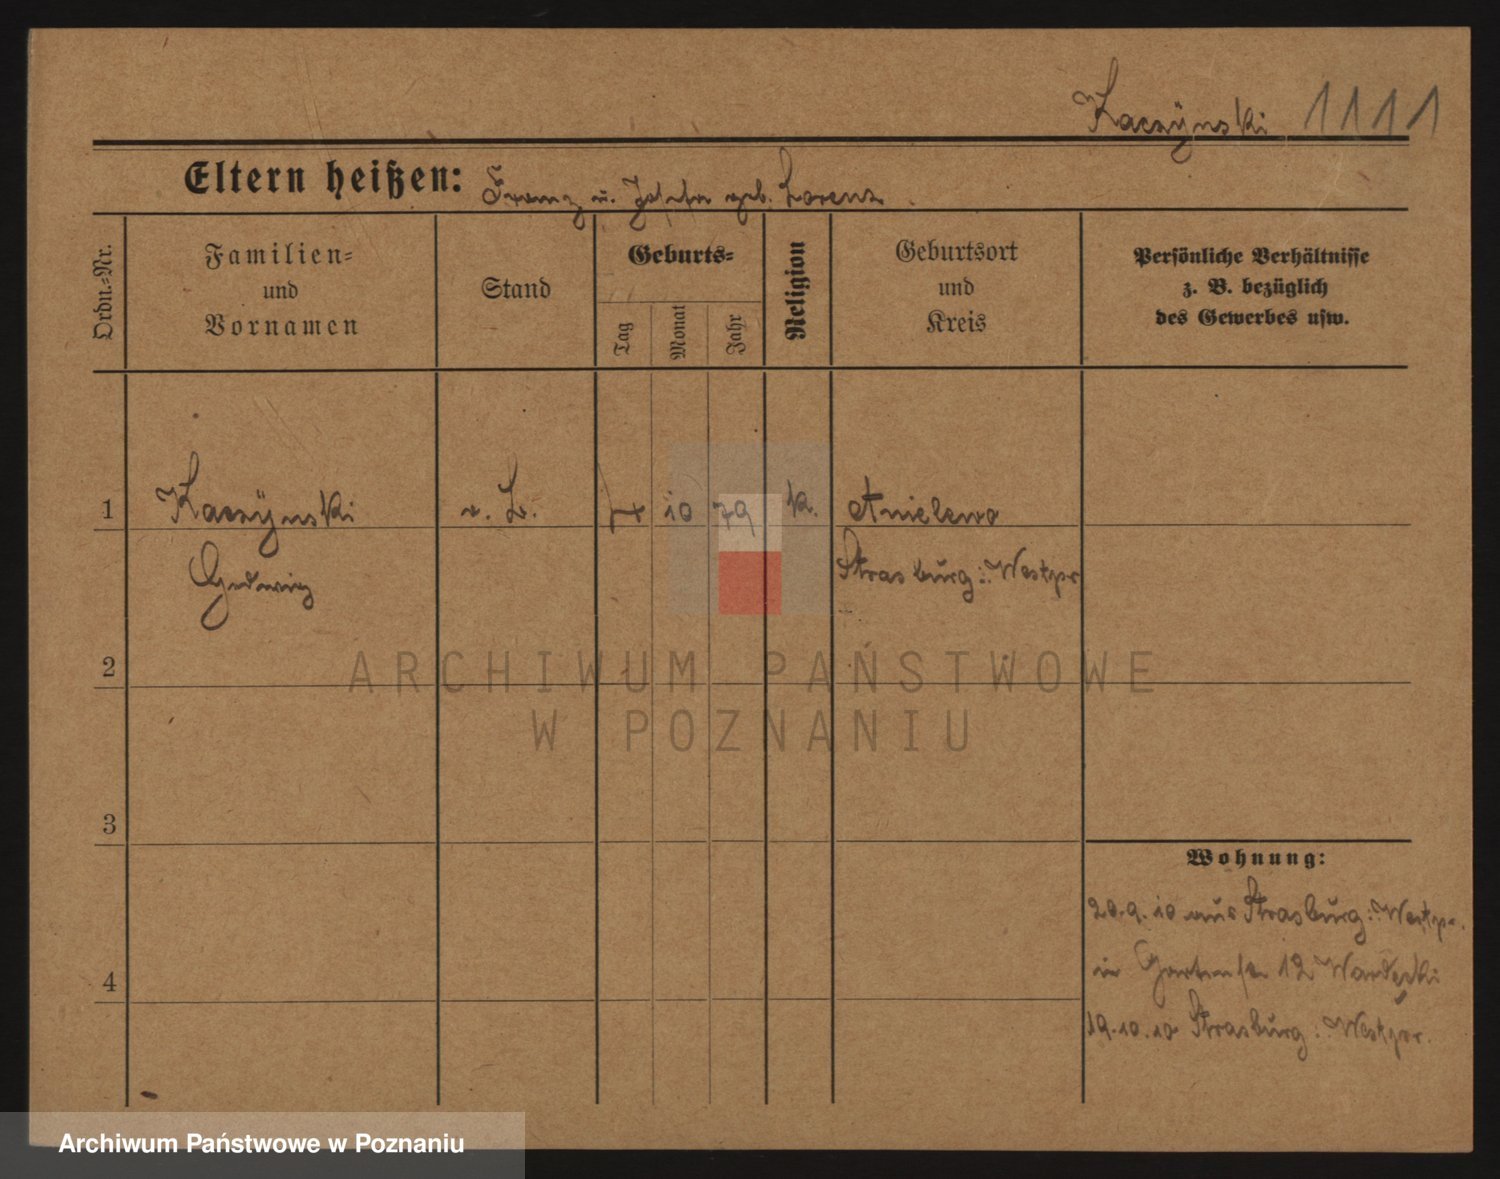 Kaczÿnski 1111
Eltern heißen: Franz u. Josefa geb. Lorenz.
Ordn.=Nr.
Familien=
und
Vornamen
Stand
Geburts=
Tag
Monat
Jahr
Religion
Geburtsort
und
Kreis
Persönliche Verhältnisse
z. B. bezüglich
des Gewerbes usw.
1 Kaczÿnski 10 79 k. Anielewo
Strasburg i. Westpr
2
3
4
Wohnung:
20.9.10 aus Strasburg i. Westpr.
in Gartenstr 12
19.10.10 Strasburg i. Westpr.
ARCHIWUM PAŃSTWOWE
W POZNANIU
Archiwum Państwowe w Poznaniu